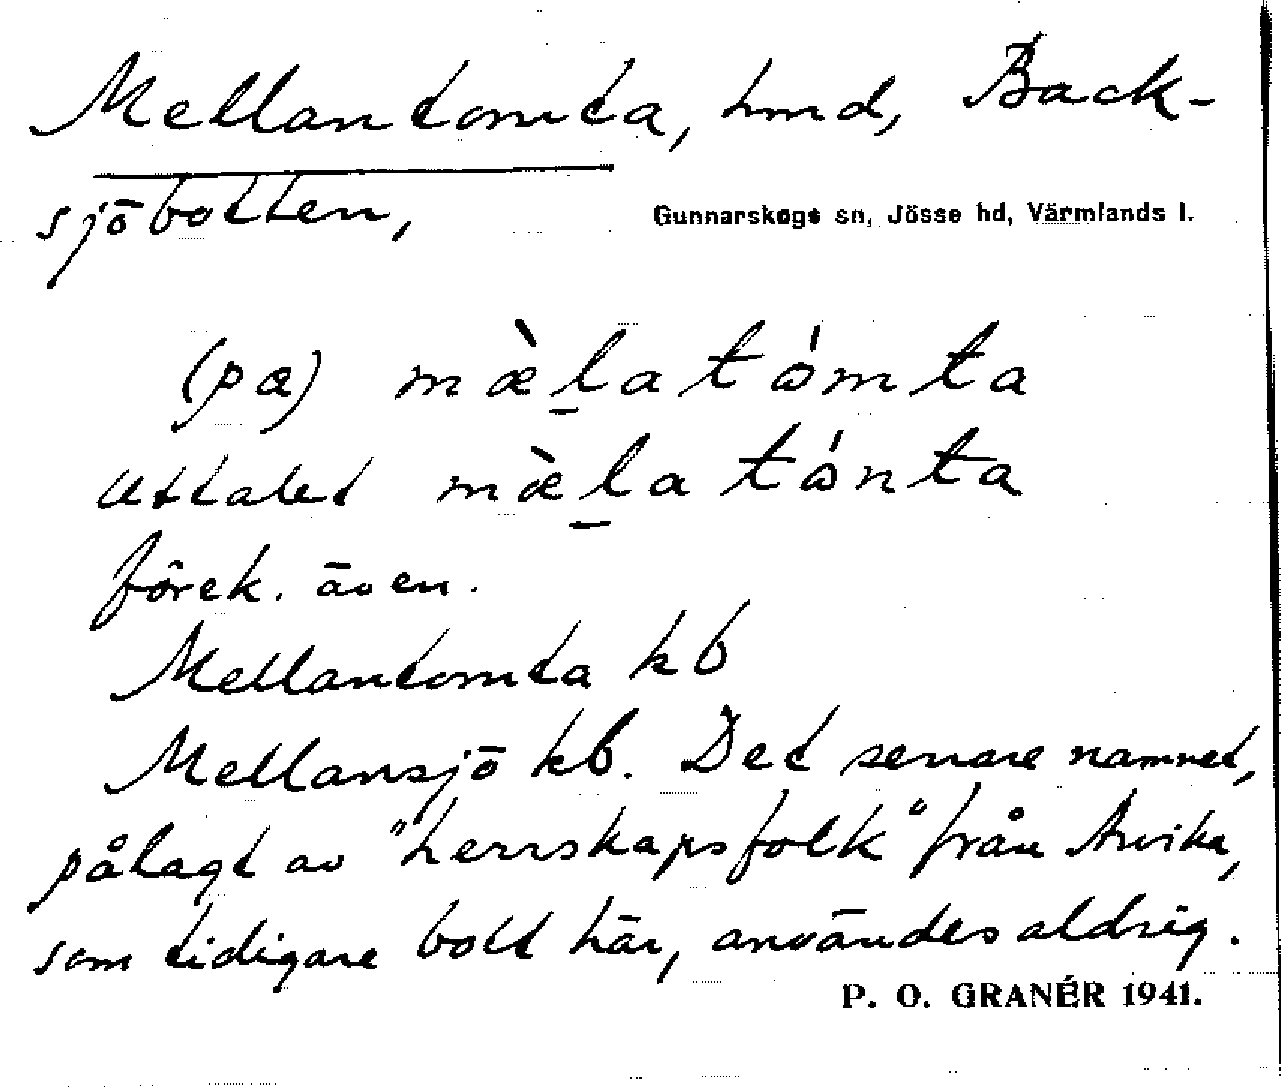 Mellantomta, hmd, Back-
sjöbotten,
Gunnarskogs sn, Jösse hd, Värmlands l.
(pæ) mæ̀l̠atǻmta
uttalet mæ̀l̠atǻnta
förek. även.
Mellantomta kb
Mellansjö kb. Det senare namnet,
pålagt av "herrskapsfolk" från Arvika,
som tidigare bott här, användes aldrig.
P. O. GRANÉR 1941.